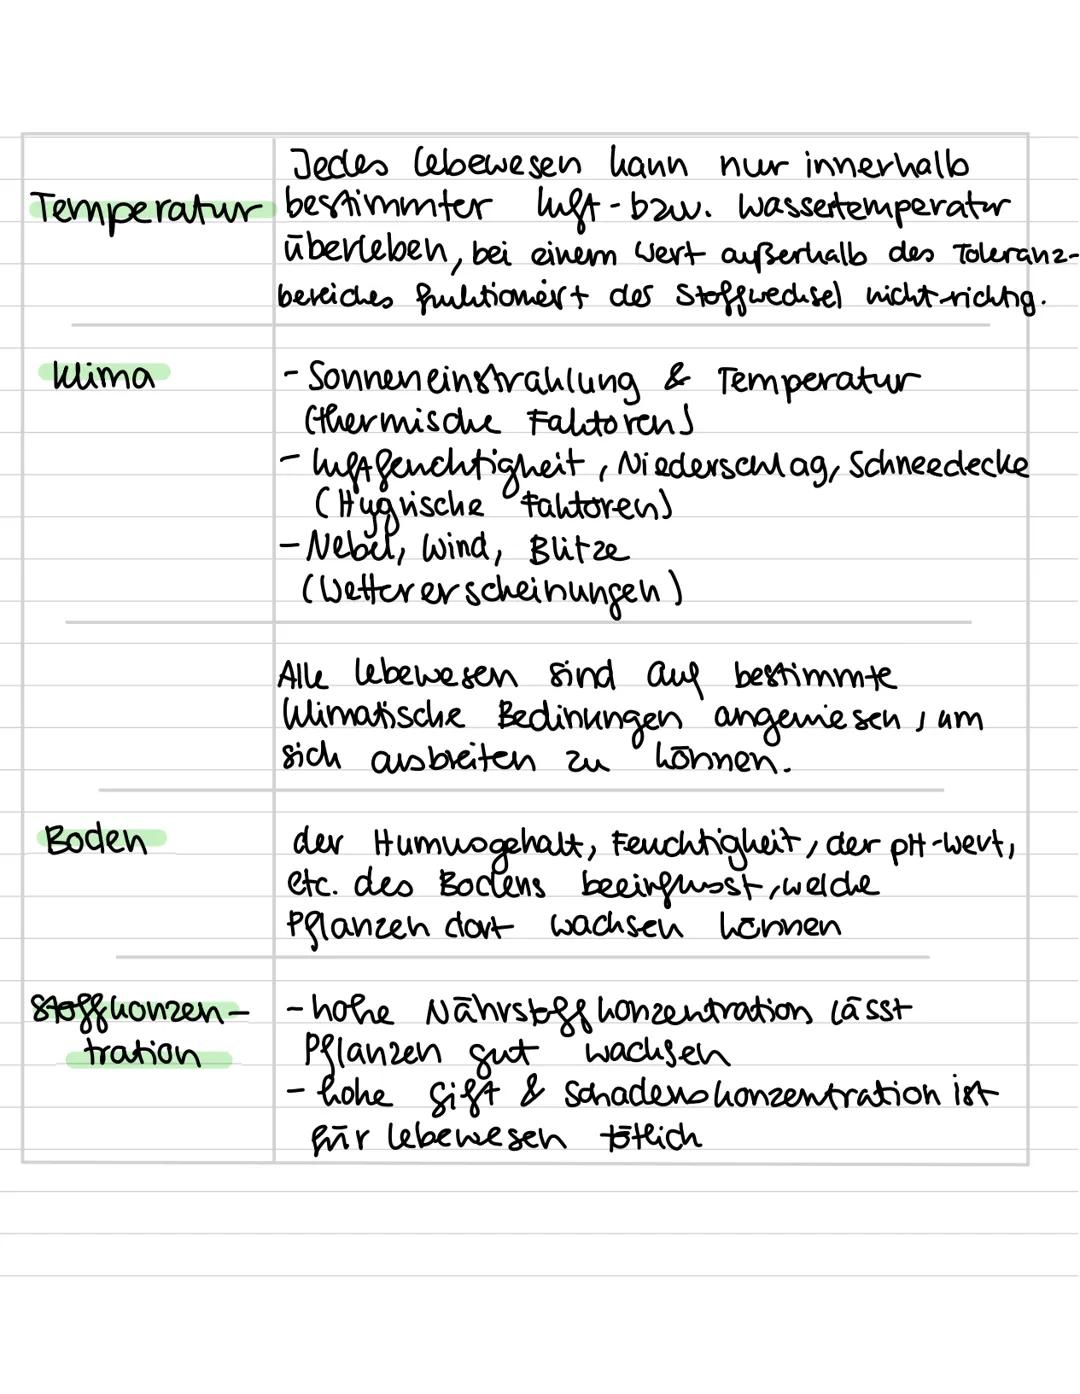 Jedes Lebewesen kann nur innerhalb
Temperatur bestimmter Luft-bzw. Wassertemperatur
überleben, bei einem Wert außerhalb des Toleranz-
bereiches funktioniert der Stoffwechsel nicht richtig.
Klima - Sonneneinstrahlung & Temperatur
(thermische Faktoren)
- Luftfeuchtigkeit, Niederschlag, Schneedecke
(Hygrische Faktoren)
- Nebel, Wind, Blitze
(Wettererscheinungen)
Alle Lebewesen sind auf bestimmte
klimatische Bedinungen angewiesen, um
sich ausbreiten zu können.
Boden der Humusgehalt, Feuchtigkeit, der pH-Wert,
etc. des Bodens beeinflusst, welche
Pflanzen dort wachsen können
Stoffkonzen- - hohe Nährstoffkonzentration lässt
tration Pflanzen gut wachsen
- hohe Gift & Schadenskonzentration ist
für Lebewesen tötlich